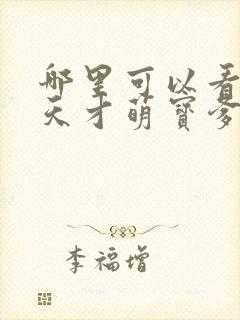 哪里可以看
天才萌寶爹
李福增